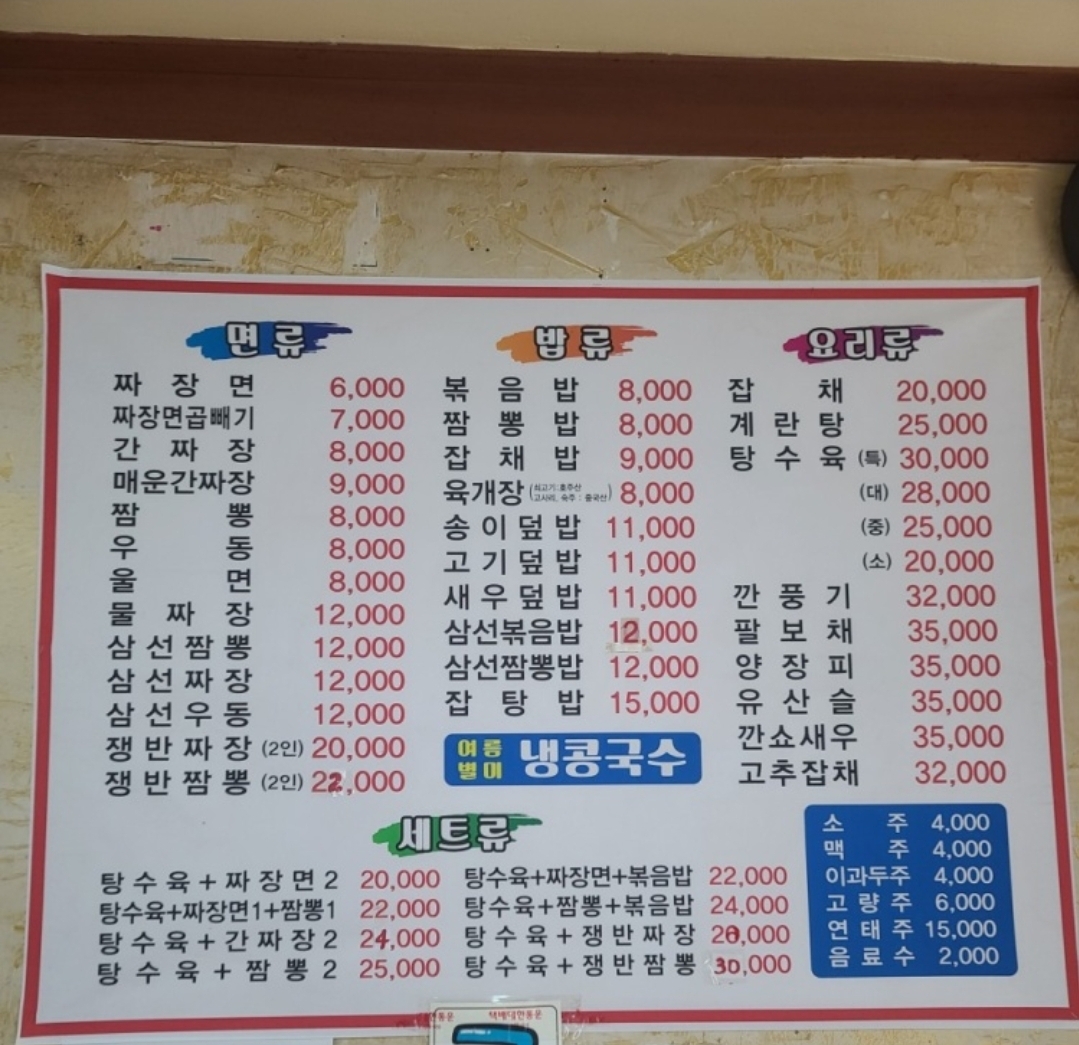 면류
짜장면 6,000
짜장면곱빼기 7,000
간짜장 8,000
매운간짜장 9,000
짬뽕 8,000
우동 8,000
울면 8,000
물짜장 12,000
삼선짬뽕 12,000
삼선짜장 12,000
삼선우동 12,000
쟁반짜장 (2인) 20,000
쟁반짬뽕 (2인) 22,000
밥류
볶음밥 8,000
짬뽕밥 8,000
잡채밥 9,000
육개장 (쇠고기:호주산 고사리, 숙주 : 중국산) 8,000
송이덮밥 11,000
고기덮밥 11,000
새우덮밥 11,000
삼선볶음밥 12,000
삼선짬뽕밥 12,000
잡탕밥 15,000
여름별미 냉콩국수
요리류
잡채 20,000
계란탕 25,000
탕수육 (특) 30,000
(대) 28,000
(중) 25,000
(소) 20,000
깐풍기 32,000
팔보채 35,000
양장피 35,000
유산슬 35,000
깐쇼새우 35,000
고추잡채 32,000
세트류
탕수육+짜장면2 20,000
탕수육+짜장면1+짬뽕1 22,000
탕수육+간짜장2 24,000
탕수육+짬뽕2 25,000
탕수육+짜장면+볶음밥 22,000
탕수육+짬뽕+볶음밥 24,000
탕수육+쟁반짜장
탕수육+쟁반짬뽕 30,000
소주 4,000
맥주 4,000
이과두주 4,000
고량주 6,000
연태주 15,000
음료수 2,000
택배대한통운